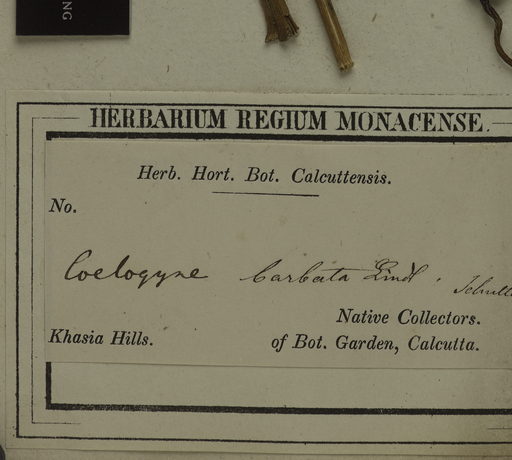 NG
HERBARIUM REGIUM MONACENSE.
Herb. Hort. Bot. Calcuttensis.
No.
Coelogyne barbata Lindl.
Khasia Hills.
Native Collectors.
of Bot. Garden, Calcutta.